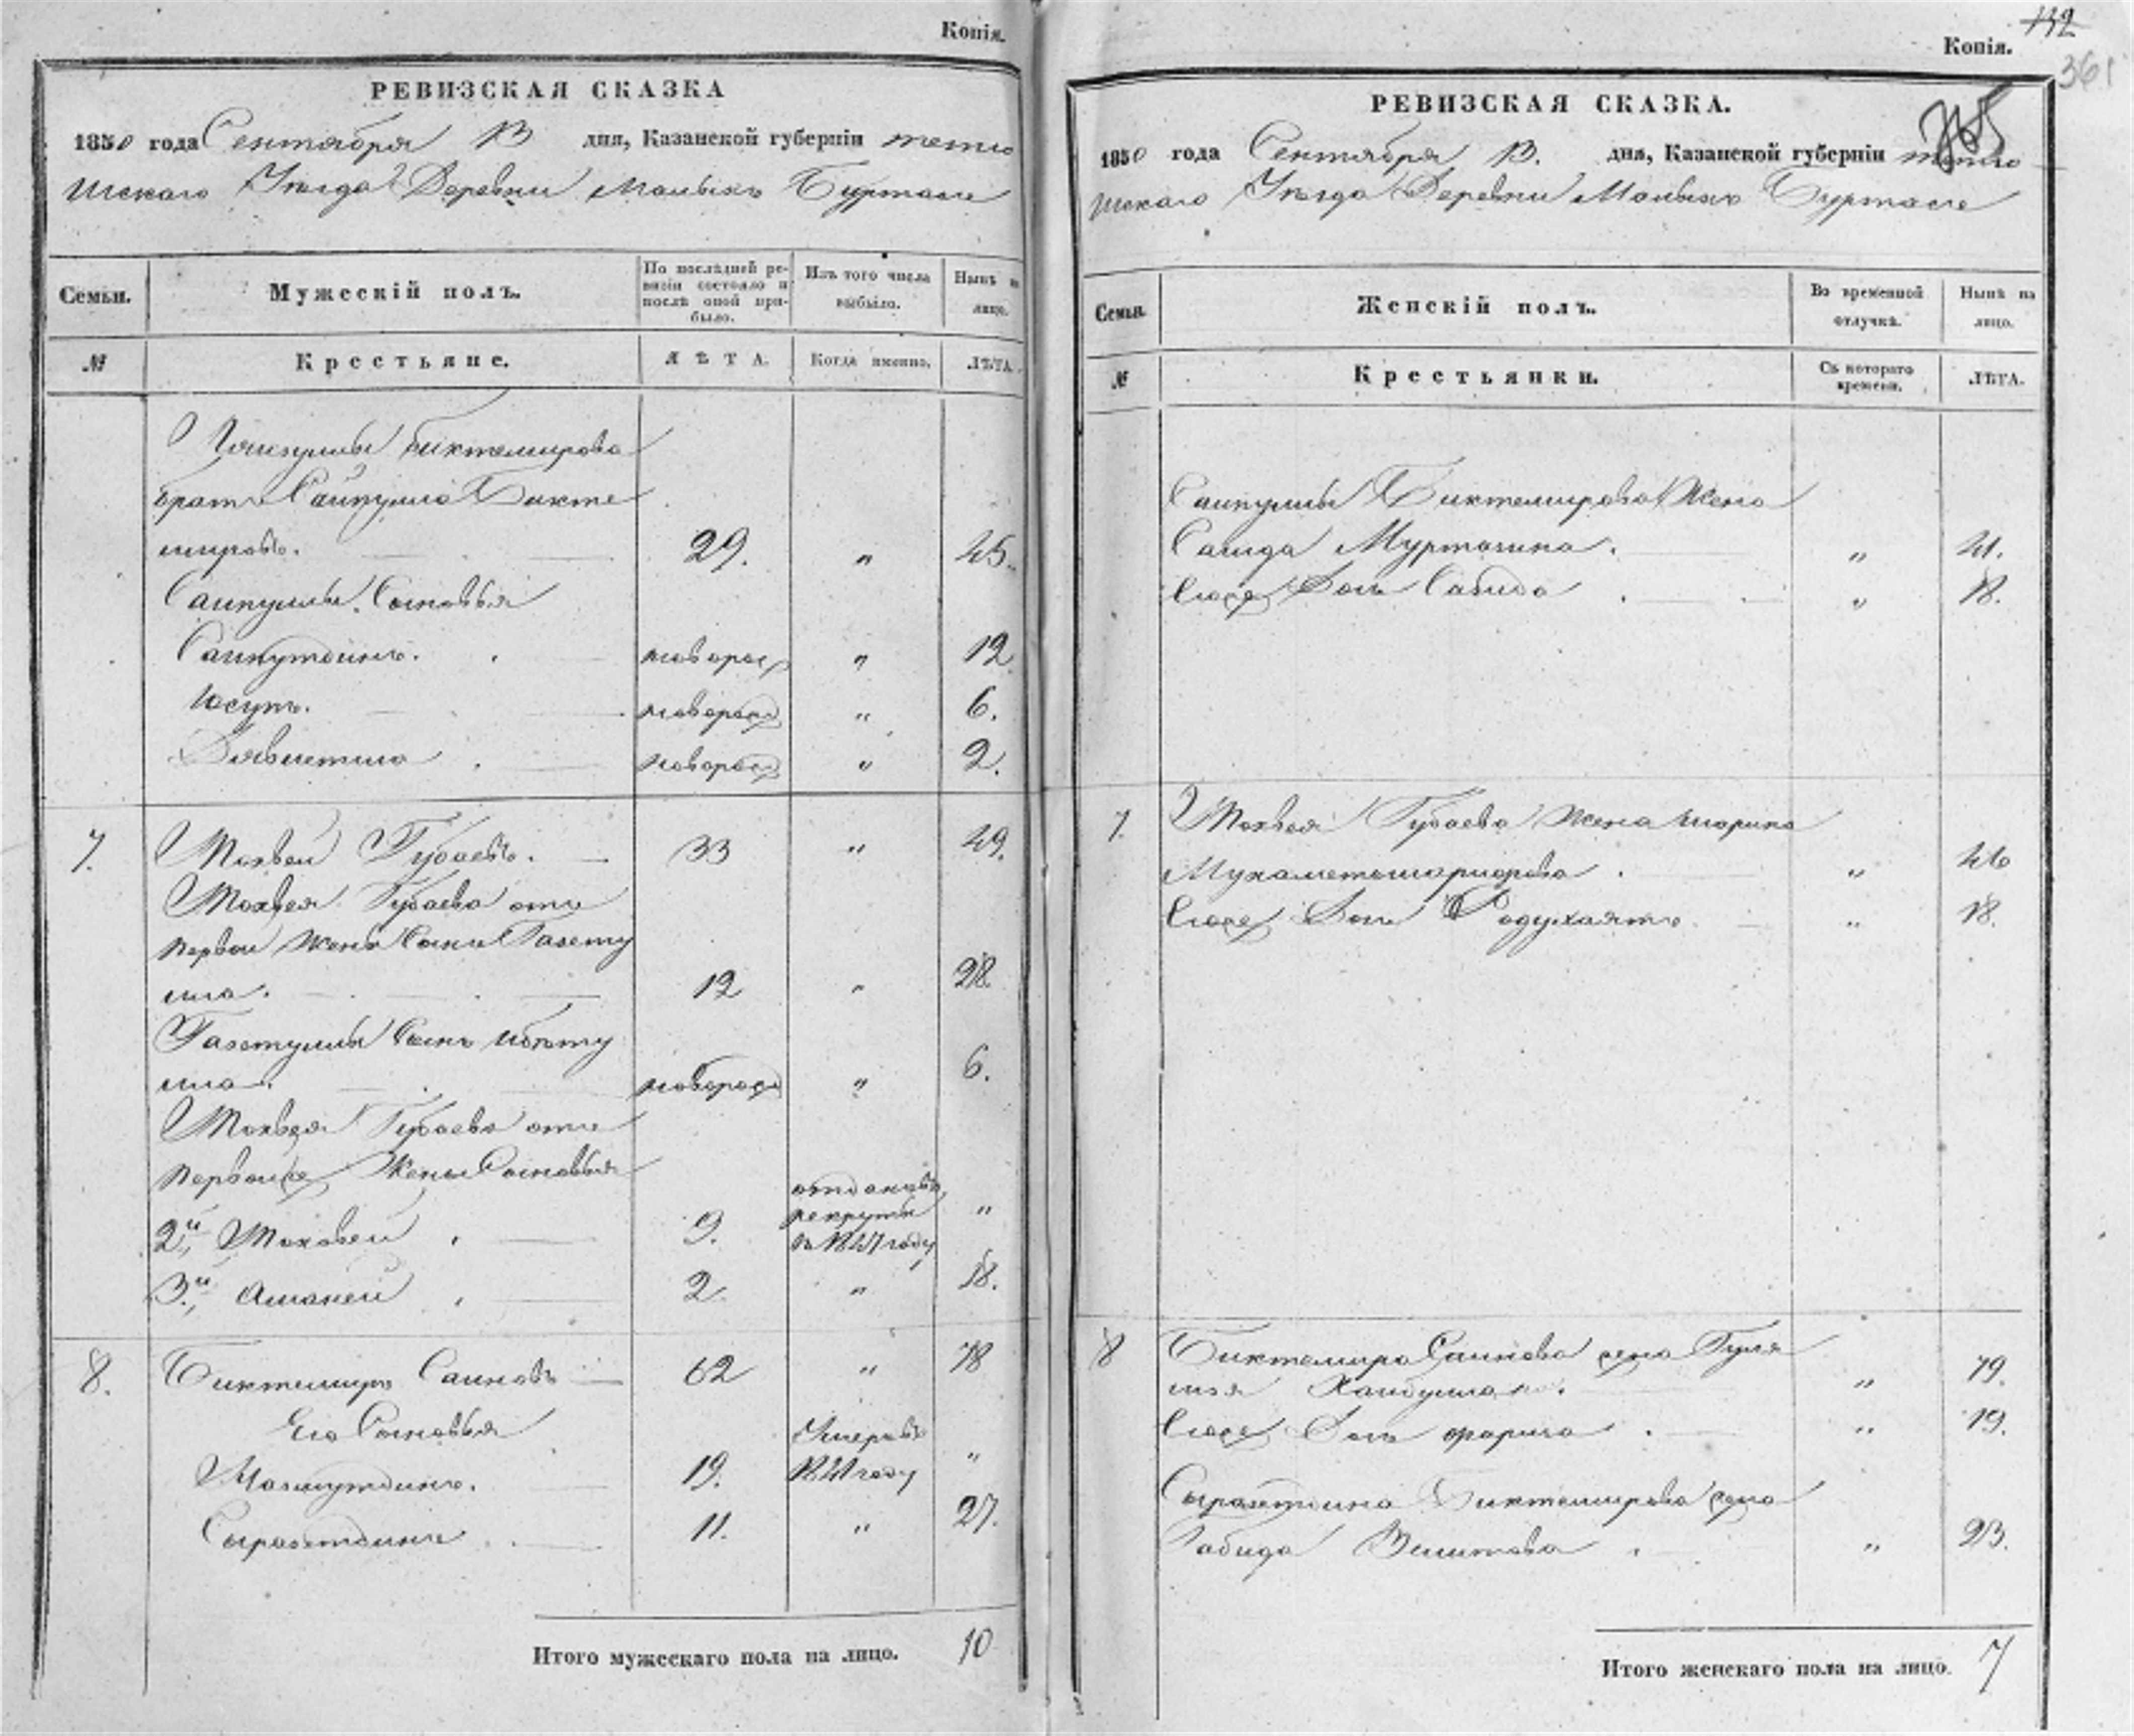 Копія.
РЕВИЗСКАЯ СКАЗКА
1850 года Сентября 13 дня, Казанской губерніи тетю
шскаго Уѣзда Деревни Малыхъ Буртасъ
Семьи.
Мужескій полъ.
По послѣдней ре-
визіи состояло и
послѣ оной при-
было.
Изъ того числа
выбыло.
Нынѣ на
лицо.
№
Крестьяне.
ЛѢТА.
Когда именно.
ЛѢТА.
Биктемирова
братъ Сайпулла Бикте
мировъ. 29. " 45.
Сайпуллы Сыновья
Сайпутдинъ. новорож " 12
Юсупъ. новорожд " 6.
Давлетша новорожд " 2.
7. Махвей Губаевъ. 33 " 49.
Махвея Губаева отъ
первой жены сынъ Газету
лла. 12 " 28.
Газетуллы сынъ Ибяту
лла. новорожд " 6.
Махвея Губаева отъ
первой же жены Сыновья
2й Маховей 9. отданъ въ рекруты въ 1847 году "
3й Аманей 2. " 18.
8. Биктемиръ Саиновъ 62 " 78
Его Сыновья
Мазмутдинъ. 19. Умеръ въ 1841 году "
Сыразетдинъ 11. " 27.
Итого мужескаго пола на лицо. 10
132
361
Копія.
РЕВИЗСКАЯ СКАЗКА.
1850 года Сентября 13. дня, Казанской губерніи тетю
шскаго Уѣзда Деревни Малыхъ Буртасъ
Семьи.
Женскій полъ.
Во временной
отлучкѣ.
Нынѣ на
лицо.
№
Крестьянки.
Съ котораго
времени.
ЛѢТА.
Сайпуллы Биктемирова Жена
Саида Муртазина. " 41.
Ея же Дочь Сабида " 18.
7. Махвея Губаева Жена
Мухаметшарифова " 46
Ея же Дочь " 18.
8 Биктемира Саинова жена Гуля
" 79.
Ея же Дочь Фариза " 19.
Сыразетдина Биктемирова жена
Габида Велитова " 23.
Итого женскаго пола на лицо. 7